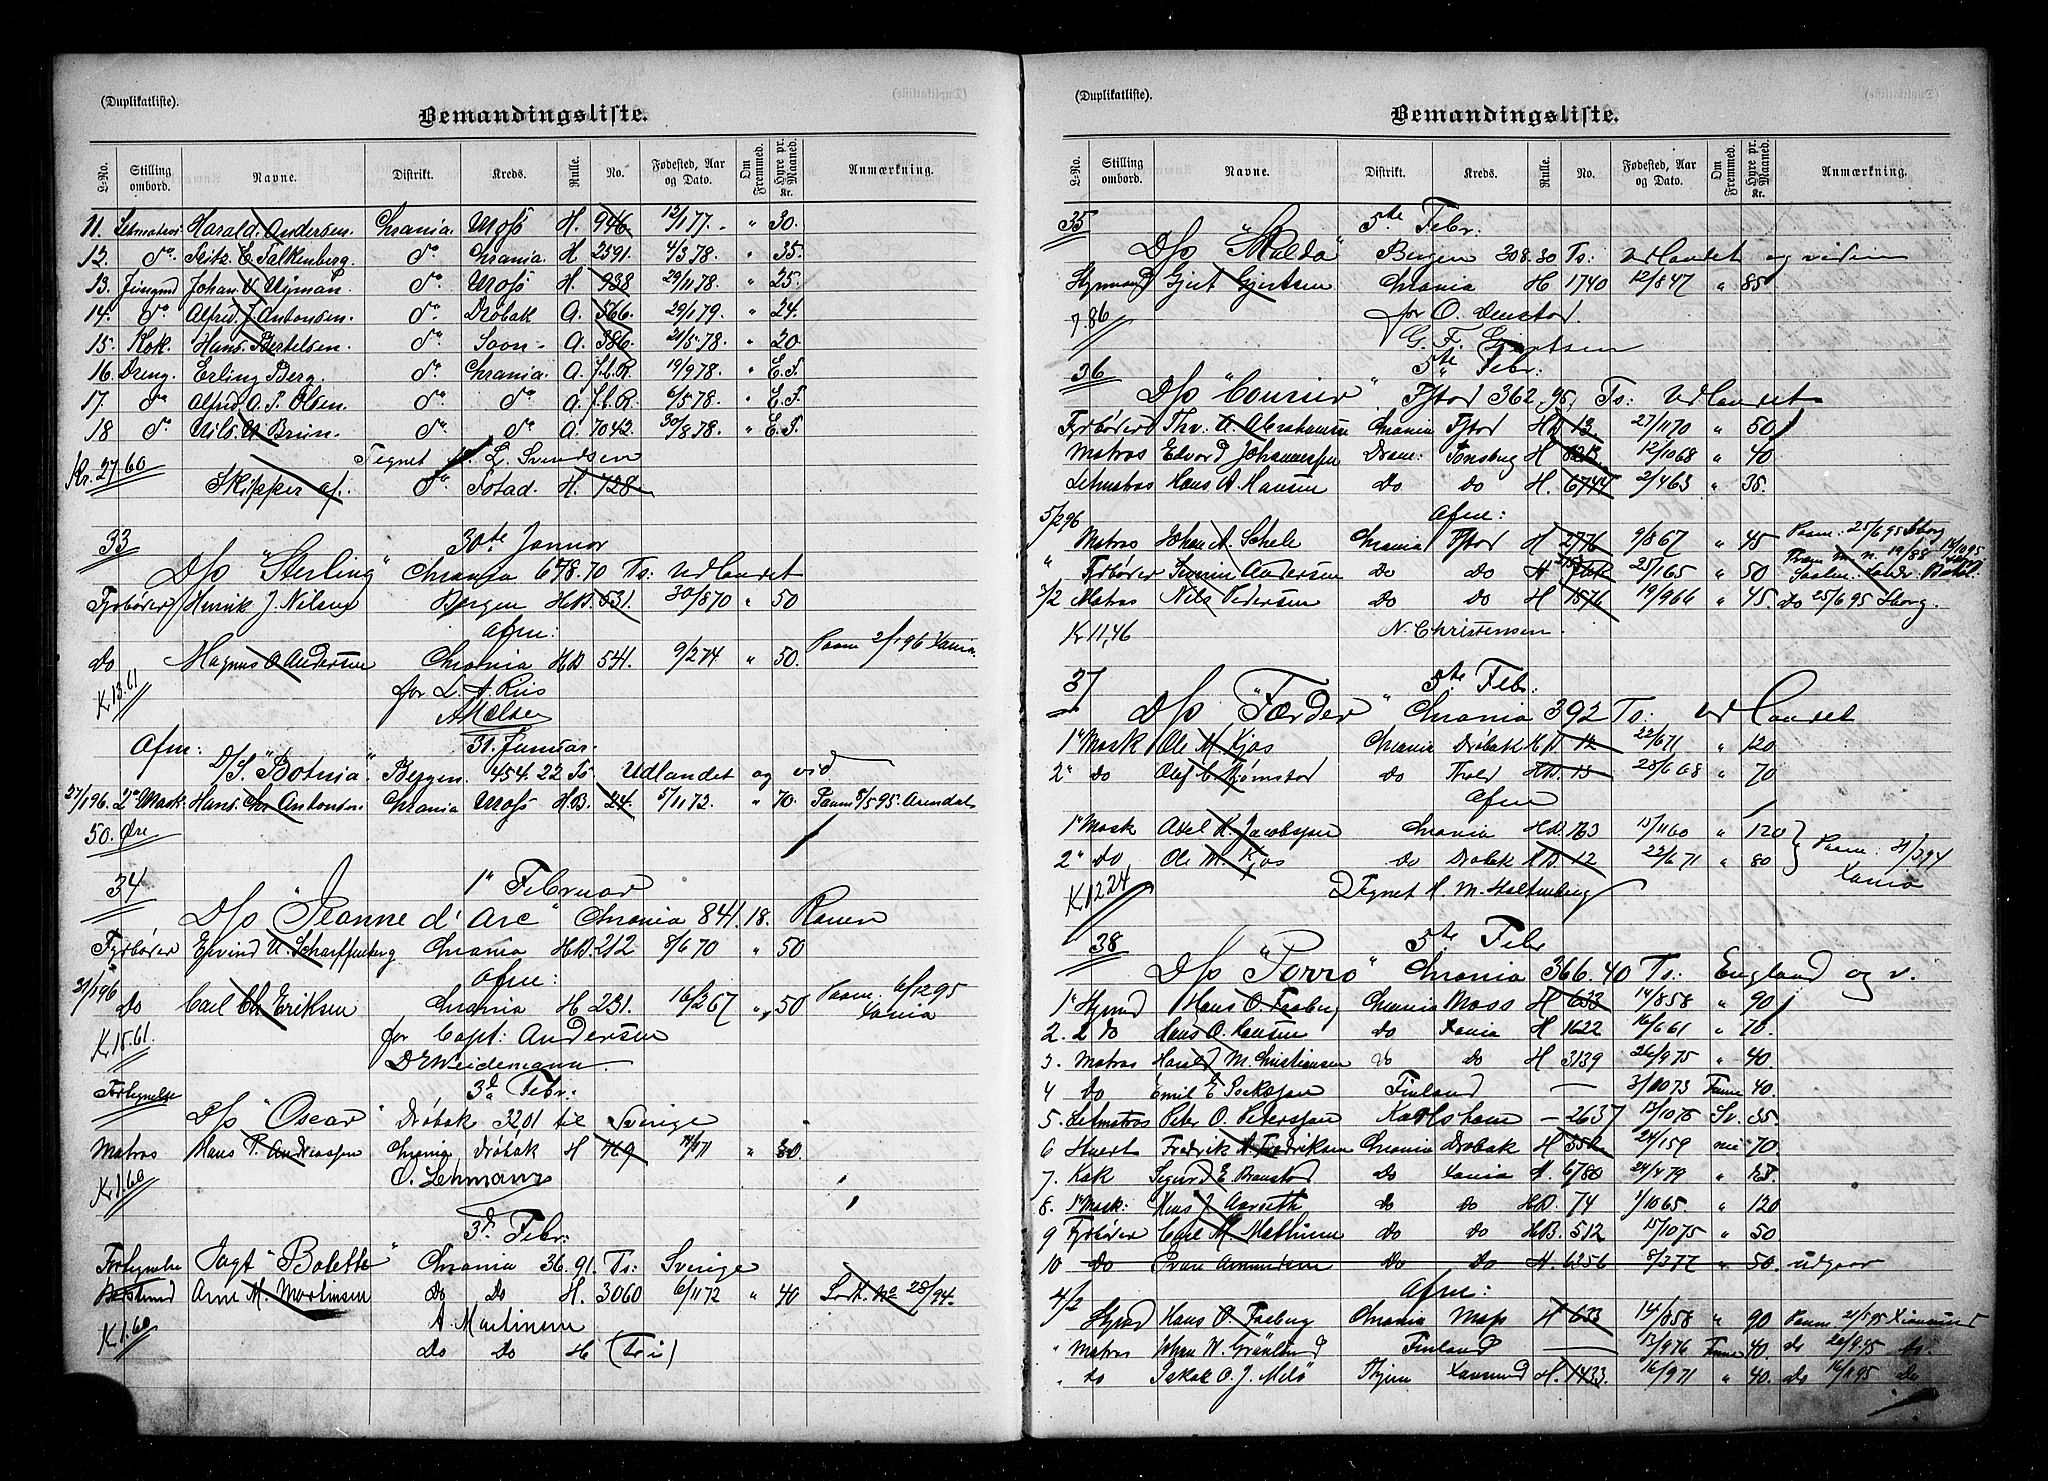 (Duplikatliste).
Bemandingsliste.
L-No. Stilling ombord. Navne. Distrikt. Kreds. Rulle. No. Fødested, Aar og Dato. Om Fremmed. Hyre pr. Maaned. Kr. Anmærkning.
11. Letmatros Harald Andersen. Chrania. Moss H. 946 12/1 77. " 30.
12. do Fritz E. Falkenberg. do Chrania H 2591. 4/3 78. " 35.
13. Jungmd Johan A. Nyman. do Moss H. 938 29/11 78. " 25.
14. do Alfred J. Antonsen. do Drøbak A. 566. 29/1 79. " 24.
15. Kok. Hans Bertelsen. do Soon A. 386. 21/5 78. " 20.
16. Dreng. Erling Berg. do Chrania. A. f.b.R. 19/9 78. " E.F.
17. do Alfred A. P. Olsen. do do A. f.b.R. 6/5 78. " E.F.
18 do Nils A. Brun. do do A. 7042. 30/8 78. " E.F.
Tegnet L. Svendsen
Kr. 27.60
Skipper af. do Fstad. H. 128
33 30te Januar
D/s "Sterling" Chrania 678.70 Ts: Udlandet
Fyrbøder Henrik J. Nilsen Bergen H.B. 531. 30/8 70 " 50
Afm:
do Magnus O. Andersen Chrania H.B 541. 9/2 74 " 50. Paam 2/1 96 Xania.
K 13.61 for L. A. Riis
31. Januar.
Afm: D/S. "Botnia" Bergen. 454.22 Ts Udlandet og vid
27/1 96. 2den Mask Hans Chr. Antonsen. Chrania Moss H.B. 24. 5/11 72. " 70. Paam 8/5 95. Arendal
50. Øre
34 1st Februar
D/s "Jeanne d'Arc" Chrania 841.18. Rouen
Fyrbøder Ejvind A. Scharffenberg Chrania H.B. 212 8/6 70 " 50
Afm:
31/1 96 do Carl Ch Eriksen Chrania H 231. 16/2 67 " 50 Paam. 6/12 95 Xania
K 15.61 for Capt: Andersen
D. Weidemann
Fortegnelse 3d Febr.
D/s "Oscar" Drøbak 3201 til Sverige
Matros Hans P. Andreassen Chrania Drøbak H 769 71 " 30.
K 1.60 O. Lehmann
3d Febr:
Fortegnelse Jagt "Bolette" Chrania 36.91. Ts: Sverige
Bestmd Arne M. Martinsen do do H. 3060 6/11 72 " 40 No 28/94.
K 1.60 A. Martinsen
do do H (Tri)
(Duplikatliste).
Bemandingsliste.
L-No. Stilling ombord. Navne. Distrikt. Kreds. Rulle. No. Fødested, Aar og Dato. Om Fremmed. Hyre pr. Maaned. Kr. Anmærkning.
35 5te Febr.
D/s "Skulda" Bergen 308.30 Ts: Udlandet og viden
Styrmand Gjert Gjertsen Chrania H 1740 12/8 47 " 85
7.86 for O.
G. F. Gjertsen
36 5te Febr:
D/s "Courier" Fstad 362.95. Ts: Udlandet
Fyrbøder Thv. A. Abrahamsen Chrania Fstad H.B 13 27/11 70 " 50
Matros Edvard Johannessen Dram: Tønsberg H 12/10 68 " 40
Letmatros Hans A. Hansen do do H. 6744 2/4 63 " 35.
Afm:
5/2 96 Matros Johan A. Schele Chrania Fstad H 2776 9/8 67 " 45 Paam. 25/6 95 Sborg
" Fyrbøder Severin Andersen do do H 25/1 65 " 50
5/2 Matros Nils Pedersen do do H 1576 19/9 66 " 45. do 25/6 95 Sborg.
K 11,46 N. Christensen
37 5te Febr:
D/s "Færder" Chrania 392 Ts: Udlandet
1st Mask Ole M. Kjos Chrania Drøbak H B. 12 22/6 71 " 120
2" do Olaf C. Bjørnstad do Thold H.B. 15 25/6 68 " 70
Afm
1st Mask Axel R. Jacobsen Chrania H.B. 763 15/11 60 " 120
2" do Ole M. Kjos do Drøbak H B 12 22/6 71 " 80 Paam. 31/3 94 Xania
K 12.24 Tegnet H. M. Stoltenberg
38 5te Febr
D/s "Porro" Chrania 366.40 Ts: England og v.
1st Styrmd Hans O. Faaberg Chrania Moss H 633 14/8 58 " 90
2. 2 do Hans O. Hansen do Xania H 1622 16/6 61 " 70.
3. Matros Harald M. Christiansen do do H 3139 26/9 75 " 40
4 do Emil E. Finland — 3/10 73 Finne 40.
5. Letmatros Peter O. Peterssen Karlsham — 2637 13/10 75 Sv. 35
6 Stuert Fredrik A. Fredriksen Chrania Drøbak H 352 24/1 59 nei 70
7. Kok Sigurd E. Branstad do Xania A. 6780 24/4 79 "
8. 1st Mask: Hans J. Aarseth do do H.B. 74 1/10 65 " 120
9 Fyrbøder Carl M. Mathisen do do H.B. 512 15/10 75 " 50
10 do Amundsen do do H 6356 8/3 77 " 50. udgaar
Afm:
4/2 Styrmd Hans O. Faaberg Chrania Moss H 633 14/8 58 " 90 Paam. 21/5 95
" Matros Johan W. Grönlund Finland — 12/9 76 Finne 40. do 20/9 95 do.
" do Jakob O. J. Melö Thjem Xansund H. 1433. 16/9 71 " 40. do 16/1 95 do